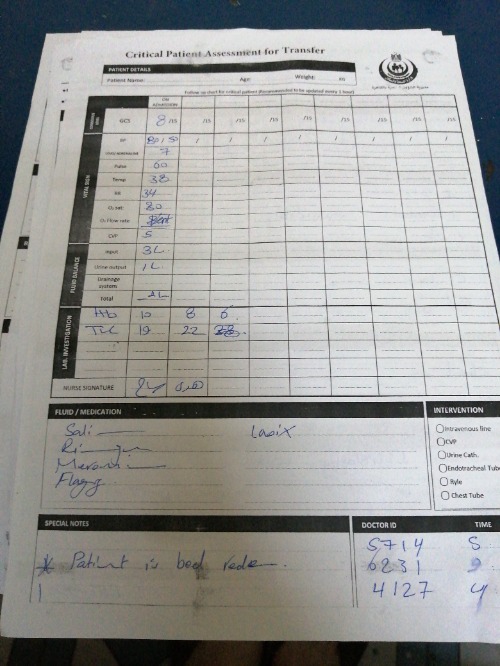 Critical Patient Assessment for Transfer
PATIENT DETAILS
Patient Name: Age: Weight: KG
Follow up chart for critical patient (Recommended to be updated every 1 hour)
ON ADMISSION
GCS 8 /15 /15 /15 /15 /15 /15 /15 /15
BP 80 / 50 / / / / / / /
7
Pulse 60
VITAL SIGN
Temp 38
RR 34
O₂ sat: 80
O₂ Flow rate
CVP 5
FLUID BALANCE
Input 3L
Urine output 1L
Drainage system
Total
LAB. INVESTIGATION
Hb 10 8 6
TLC 19 22
NURSE SIGNATURE
FLUID / MEDICATION
Lasix
Flagy
INTERVENTION
Intravenous line
CVP
Urine Cath.
Endotracheal Tube
Ryle
Chest Tube
SPECIAL NOTES
* Patient is bed
DOCTOR ID TIME
5714 5
6231
4127 4